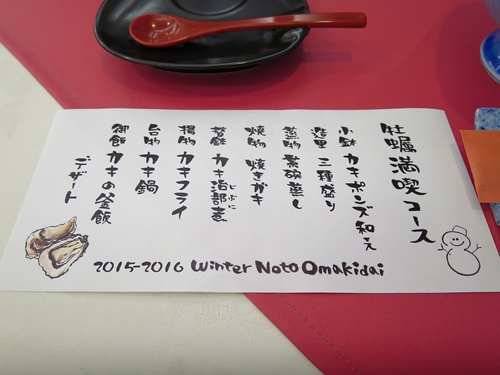 牡蠣満喫コース
小鉢 カキポンズ和え
造里 三種盛り
蒸物 茶碗蒸し
焼物 焼きガキ
若鉢 カキ治部煮
じぶに
揚物 カキフライ
台物 カキ鍋
御飯 カキの釜飯
デザート
2015-2016 Winter Noto Omakidai